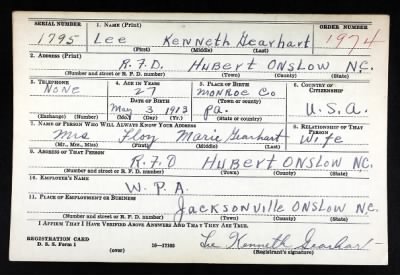 SERIAL NUMBER 1. NAME (Print) ORDER NUMBER
1795 Lee Kenneth Gearhart 1974
(First) (Middle) (Last)
2. ADDRESS (Print)
R.F.D. Hubert Onslow N.C.
(Number and street or R. F. D. number) (Town) (County) (State)
3. TELEPHONE 4. AGE IN YEARS 5. PLACE OF BIRTH 6. COUNTRY OF CITIZENSHIP
None 27 Monroe Co
DATE OF BIRTH (Town or county)
May 3 1913 Pa. U.S.A.
(Exchange) (Number) (Mo.) (Day) (Yr.) (State or country)
7. NAME OF PERSON WHO WILL ALWAYS KNOW YOUR ADDRESS 8. RELATIONSHIP OF THAT PERSON
Mrs Floy Marie Gearhart Wife
(Mr., Mrs., Miss) (First) (Middle) (Last)
9. ADDRESS OF THAT PERSON
R.F.D Hubert Onslow N.C.
(Number and street or R. F. D. number) (Town) (County) (State)
10. EMPLOYER'S NAME
W.P.A.
11. PLACE OF EMPLOYMENT OR BUSINESS
Jacksonville Onslow N.C.
(Number and street or R. F. D. number) (Town) (County) (State)
I AFFIRM THAT I HAVE VERIFIED ABOVE ANSWERS AND THAT THEY ARE TRUE.
REGISTRATION CARD
D. S. S. Form 1 16-17105 Lee Kenneth Gearhart
(over) (Registrant's signature)